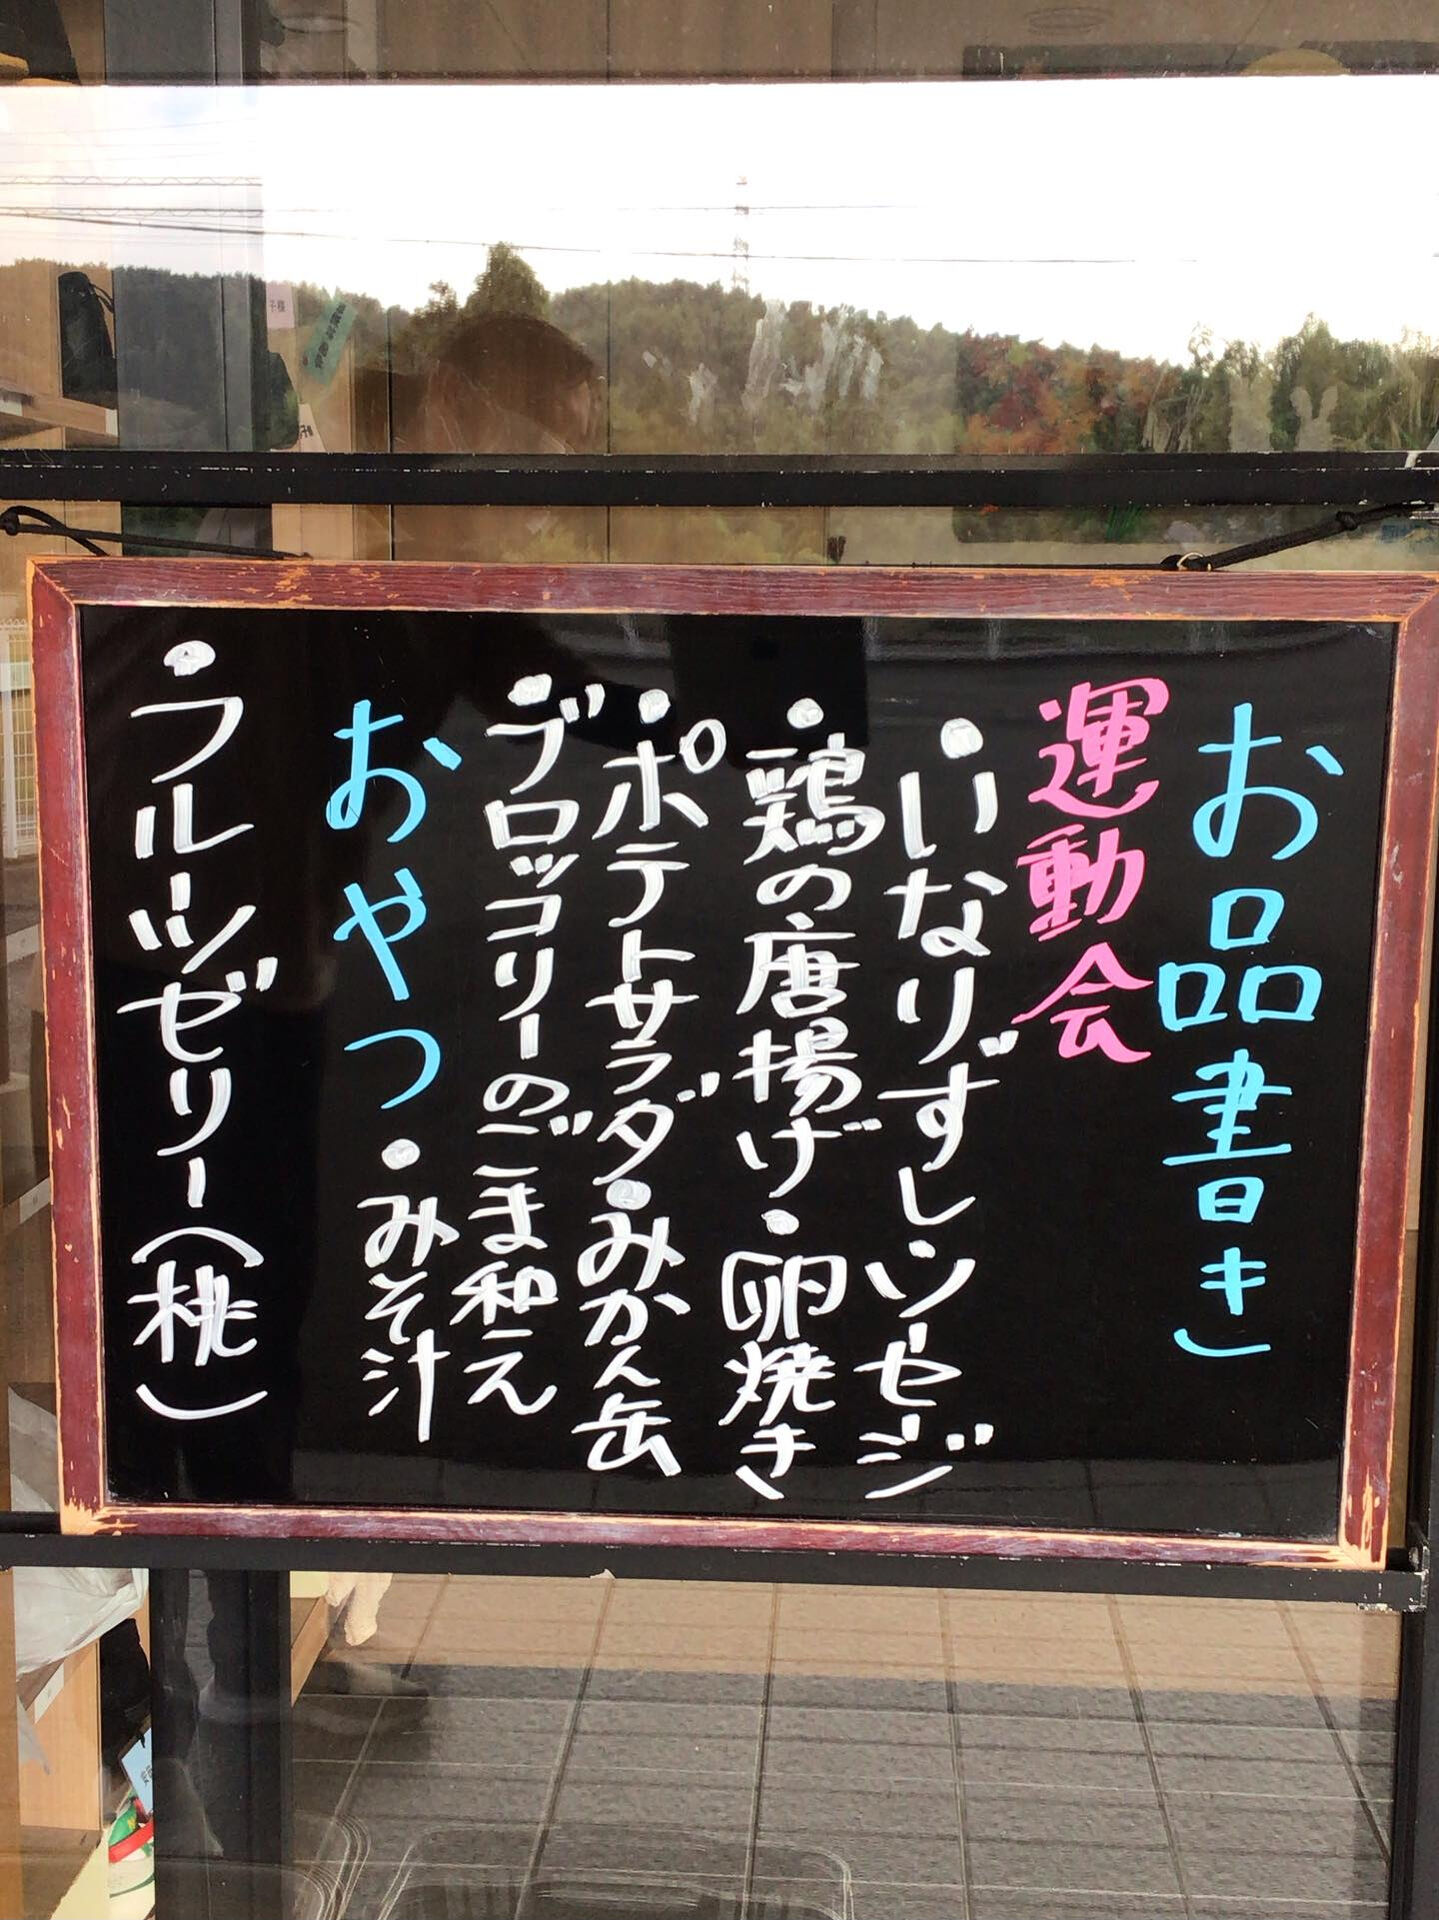 お品書き
運動会
・いなりずし・ソーセージ
・鶏の唐揚げ・卵焼き
・ポテトサラダ・みかん缶
・ブロッコリーのごま和え
・みそ汁
おやつ
・フルーツゼリー(桃)